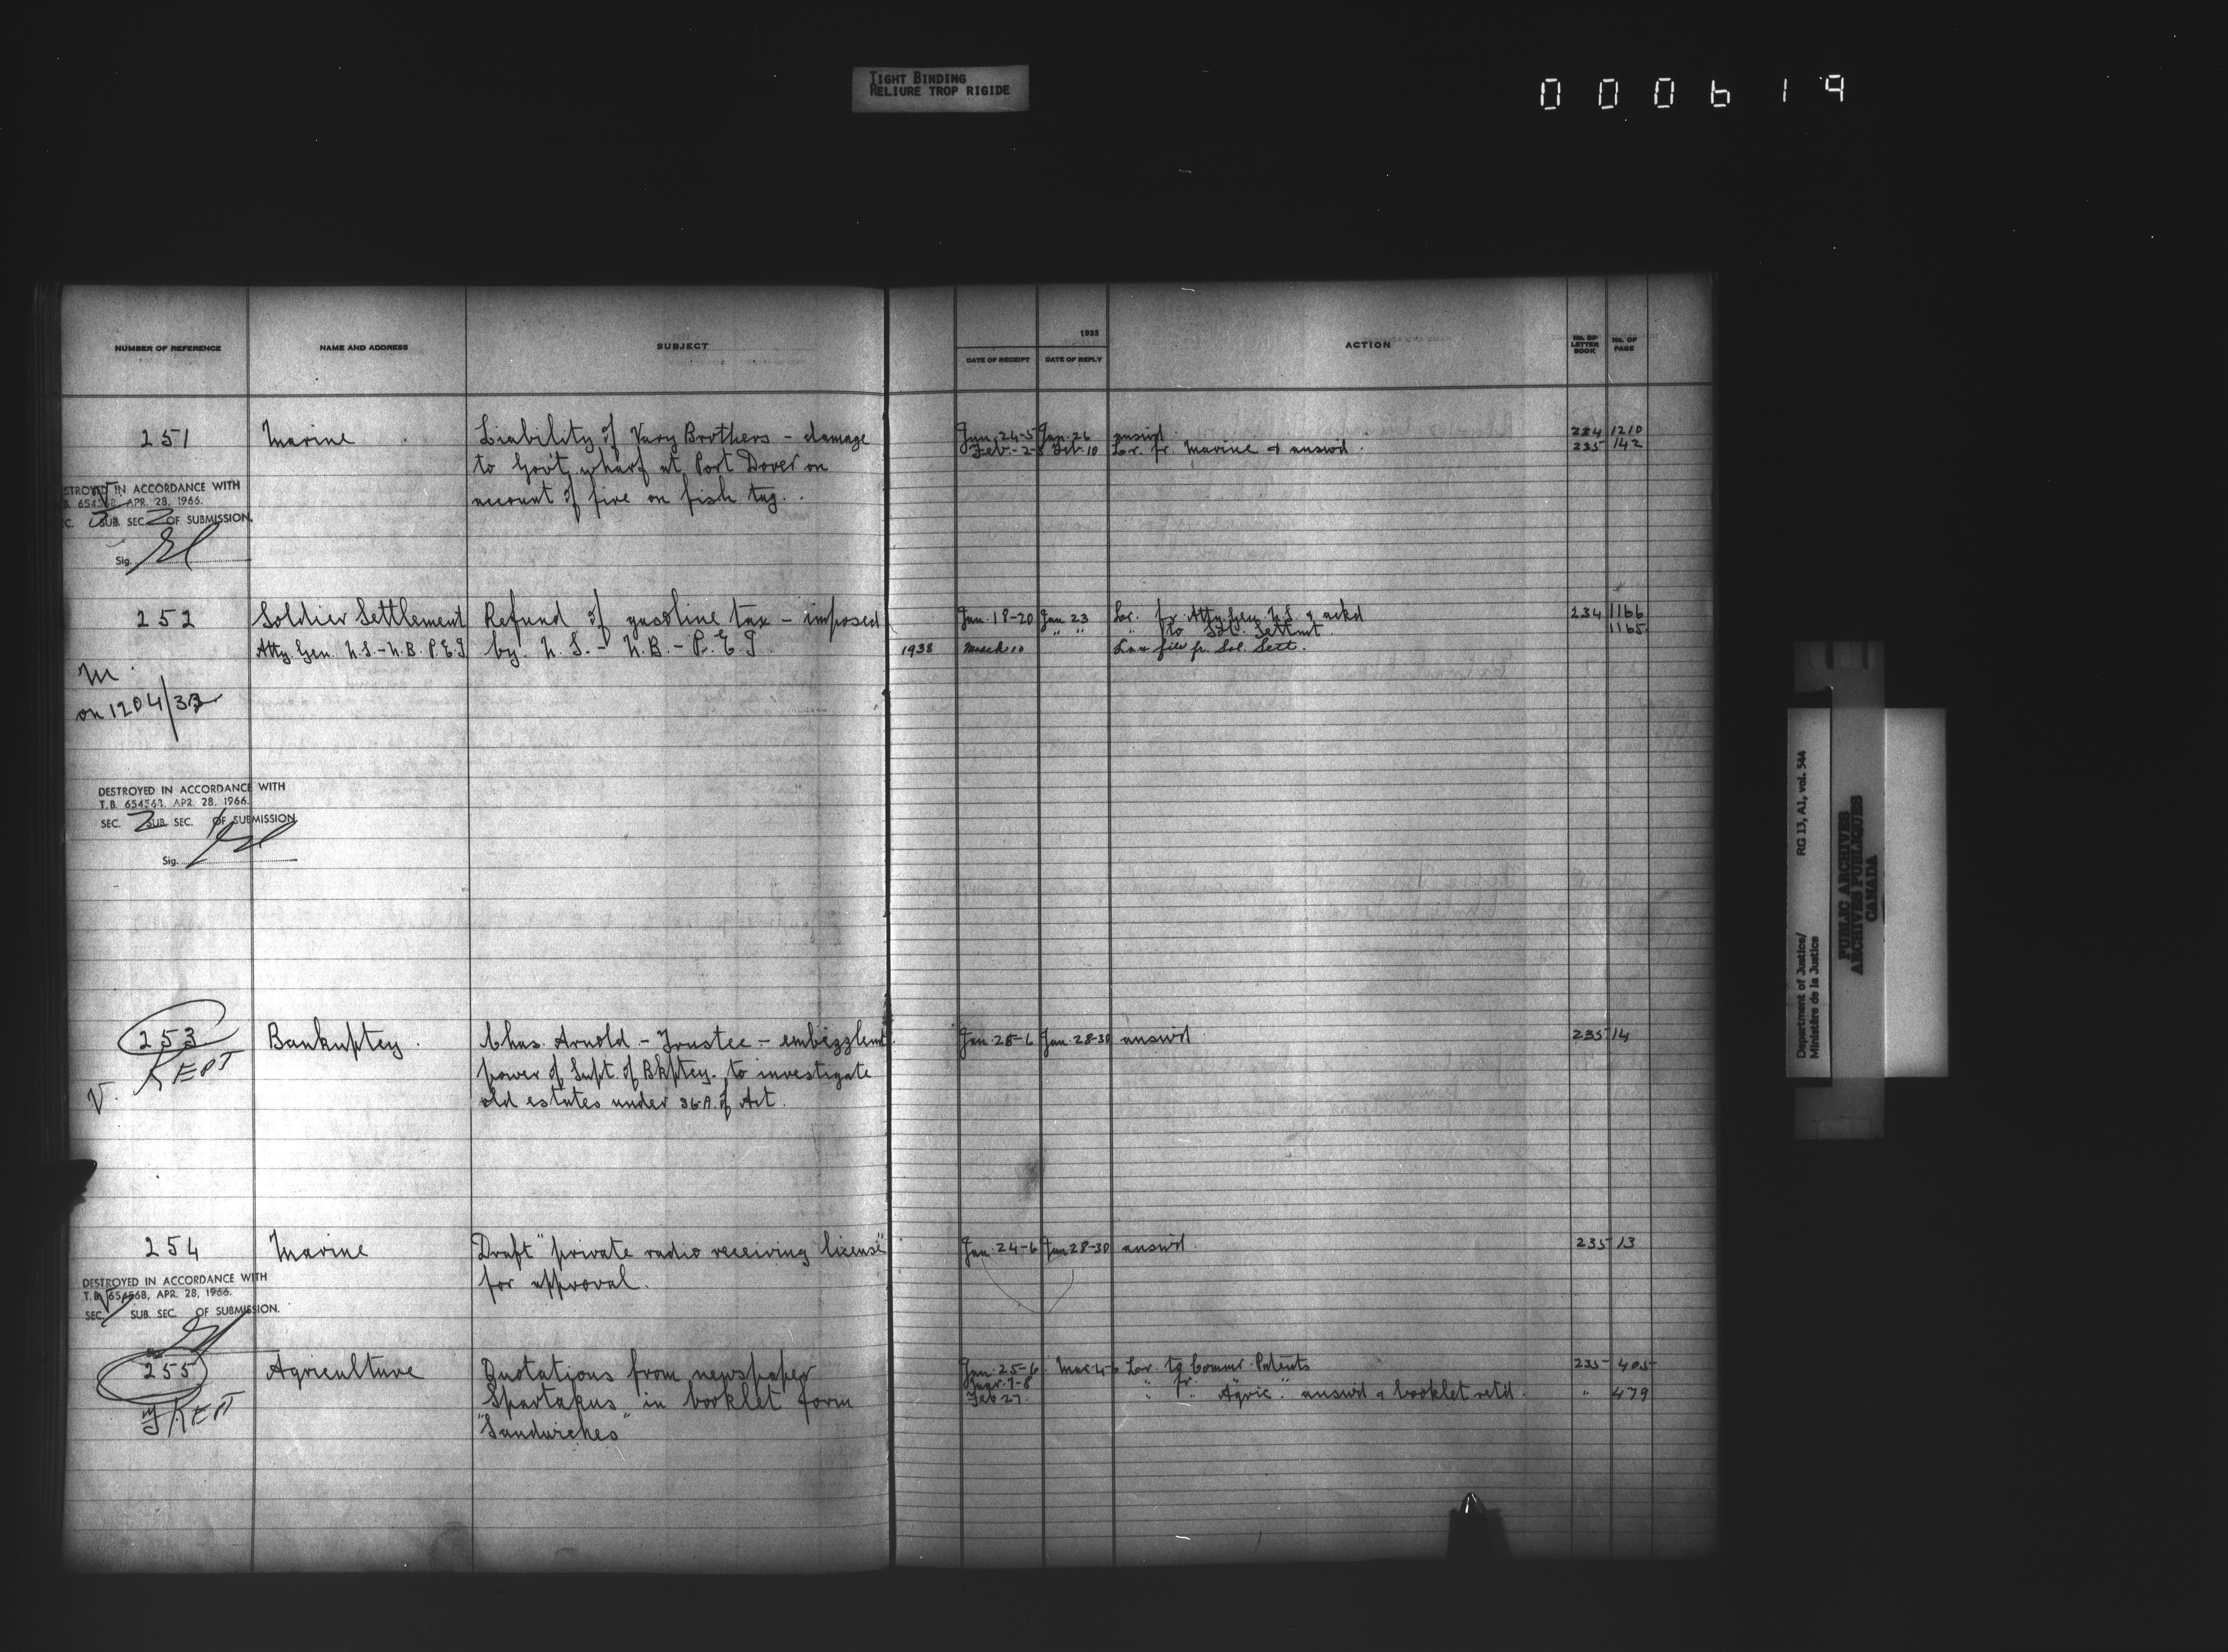 TIGHT BINDING
RELIURE TROP RIGIDE
000619
NUMBER OF REFERENCE NAME AND ADDRESS SUBJECT
1933
DATE OF RECEIPT DATE OF REPLY ACTION No. OF LETTER BOOK No. OF PAGE
251 Marine Liability of Vary Brothers - damage
to Gov't wharf at Port Dover on
account of fire on fish tug.
Jan. 24-5 Jan. 26 answd 234 1210
Feb. - 2- Feb. 10 Lr. fr. Marine & answd. 235 142
STROYED IN ACCORDANCE WITH
B. 654568, APR. 28, 1966.
C. 3 SUB. SEC. 2 OF SUBMISSION.
Sig.
252 Soldier Settlement Refund of gasoline tax - imposed
Atty. Gen. N.S. - N.B. P.E.I by. N.S. - N.B. - P.E.I
Jan. 18-20 Jan 23 Lr. fr Atty Gen. N.S. & ackd 234 1166
" " " to Sol. Settmt. 1165
1938 March 10 Law file fr. Sol. Sett.
M
on 1204/33
DESTROYED IN ACCORDANCE WITH
T.B. 654568, APR. 28, 1966.
SEC. 2 SUB. SEC. OF SUBMISSION
Sig.
253 Bankuptcy. Chas. Arnold - Trustee - embezzlemt
power of Supt. of Bkptcy. to investigate
old estates under 36A. of Act.
Jan. 25-6 Jan. 28-30 answd 235 14
KEPT
V.
254 Marine Draft "private radio receiving license"
for approval.
Jan. 24-6 Jan 28-30 answd. 235 13
DESTROYED IN ACCORDANCE WITH
T.B. 654568, APR. 28, 1966.
SEC. SUB. SEC. OF SUBMISSION.
255 Agriculture Quotations from newspaper
Spartakus in booklet form
"Sandwiches"
Jan. 25-6 Mar 4-6 Lr. to Commr. Patents 235 405
Mar. 7-8 " fr.
Feb 27. " " Agric." answd & booklet retd. " 479
KEPT
RG 13, A1, vol. 544
Department of Justice/
Ministère de la Justice
PUBLIC ARCHIVES
ARCHIVES PUBLIQUES
CANADA